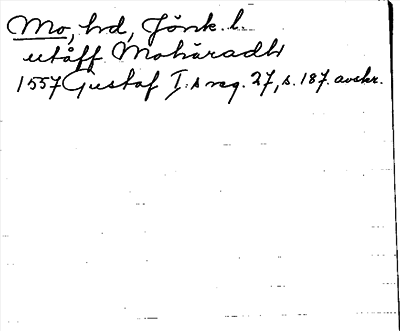 Mo, hd, Jönk. l.
utåff Mohäradh
1557 Gustaf I:s reg. 27, s. 187. avskr.